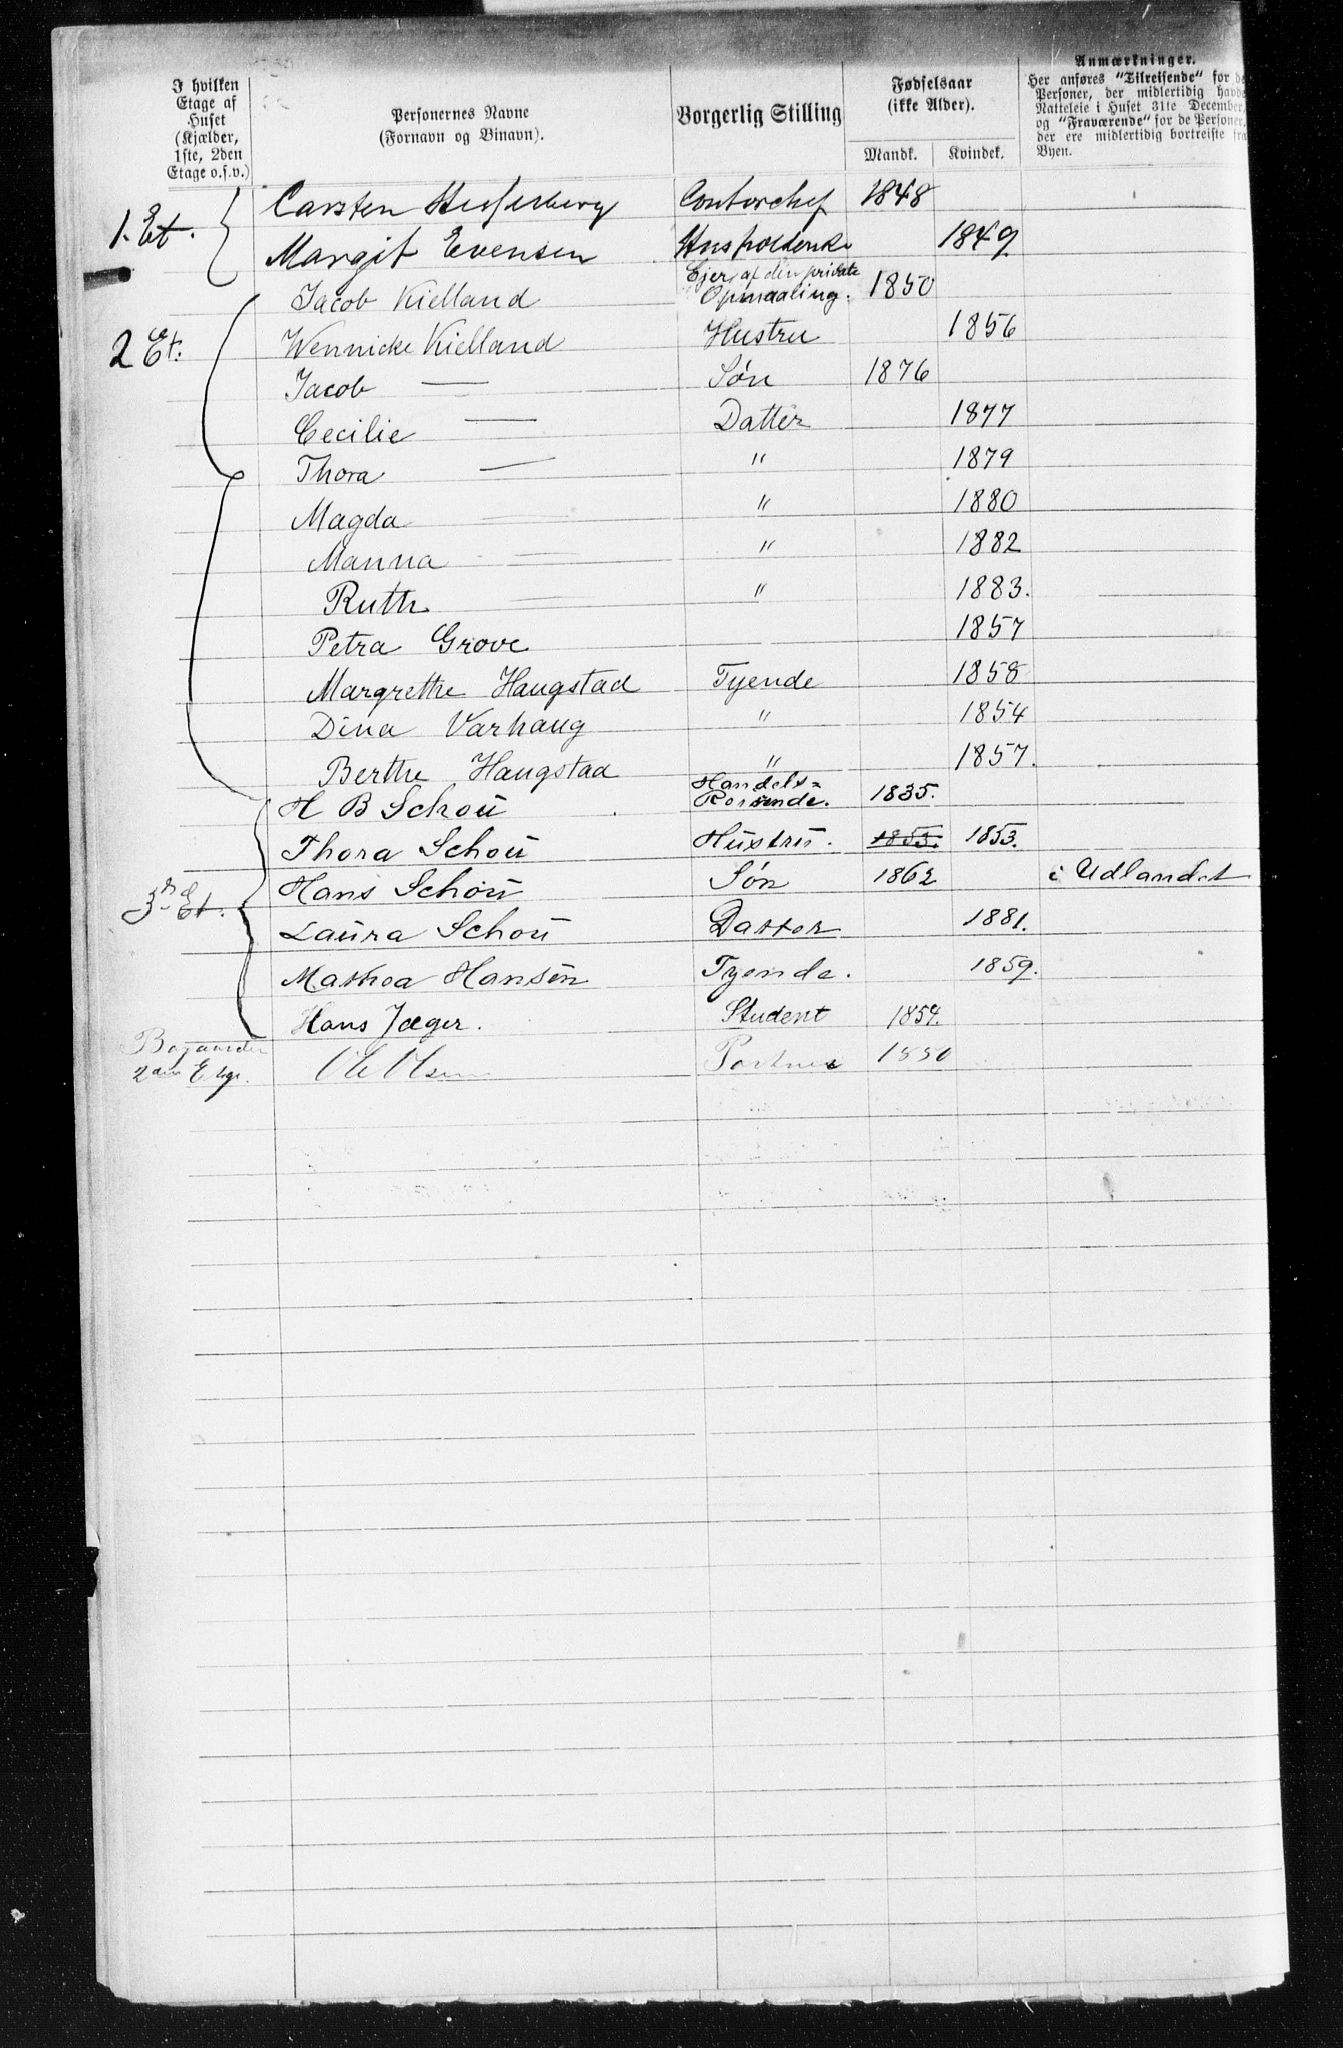 I hvilken Etage af Huset (Kjælder, 1ste, 2den Etage o.s.v.)
Personernes Navne (Fornavn og Binavn).
Borgerlig Stilling
Fødselsaar (ikke Alder).
Mandk. Kvindek.
Anmærkninger.
Her anføres "Tilreisende" for de
Personer, der midlertidig havde
Natteleie i Huset 31te December,
og "Fraværende" for de Personer,
der ere midlertidig bortreiste fra
Byen.
1. Et. Carsten Contorchef 1848
Margit Evensen 1849
Jacob Kielland Ejer af den private Opmaaling. 1850
2 Et. Wennicke Kielland Hustru 1856
Jacob — Søn 1876
Cecilie — Datter 1877
Thora — " 1879
Magda — " 1880
Manna — " 1882
Ruth — " 1883.
Petra Grove 1857
Margrethe Haugstad Tyende 1858
Dina Varhaug " 1854
Berthe Haugstad " 1857.
H B Schou Handels= 1835.
Thora Schou Hustru. 1853. 1853.
3d Et. Hans Schou Søn 1862 i Udlandet
Laura Schou Datter 1881.
Hansen Tyende. 1859.
Hans Jæger. Student 1854.
2den Etge. Ole Olsen 1850